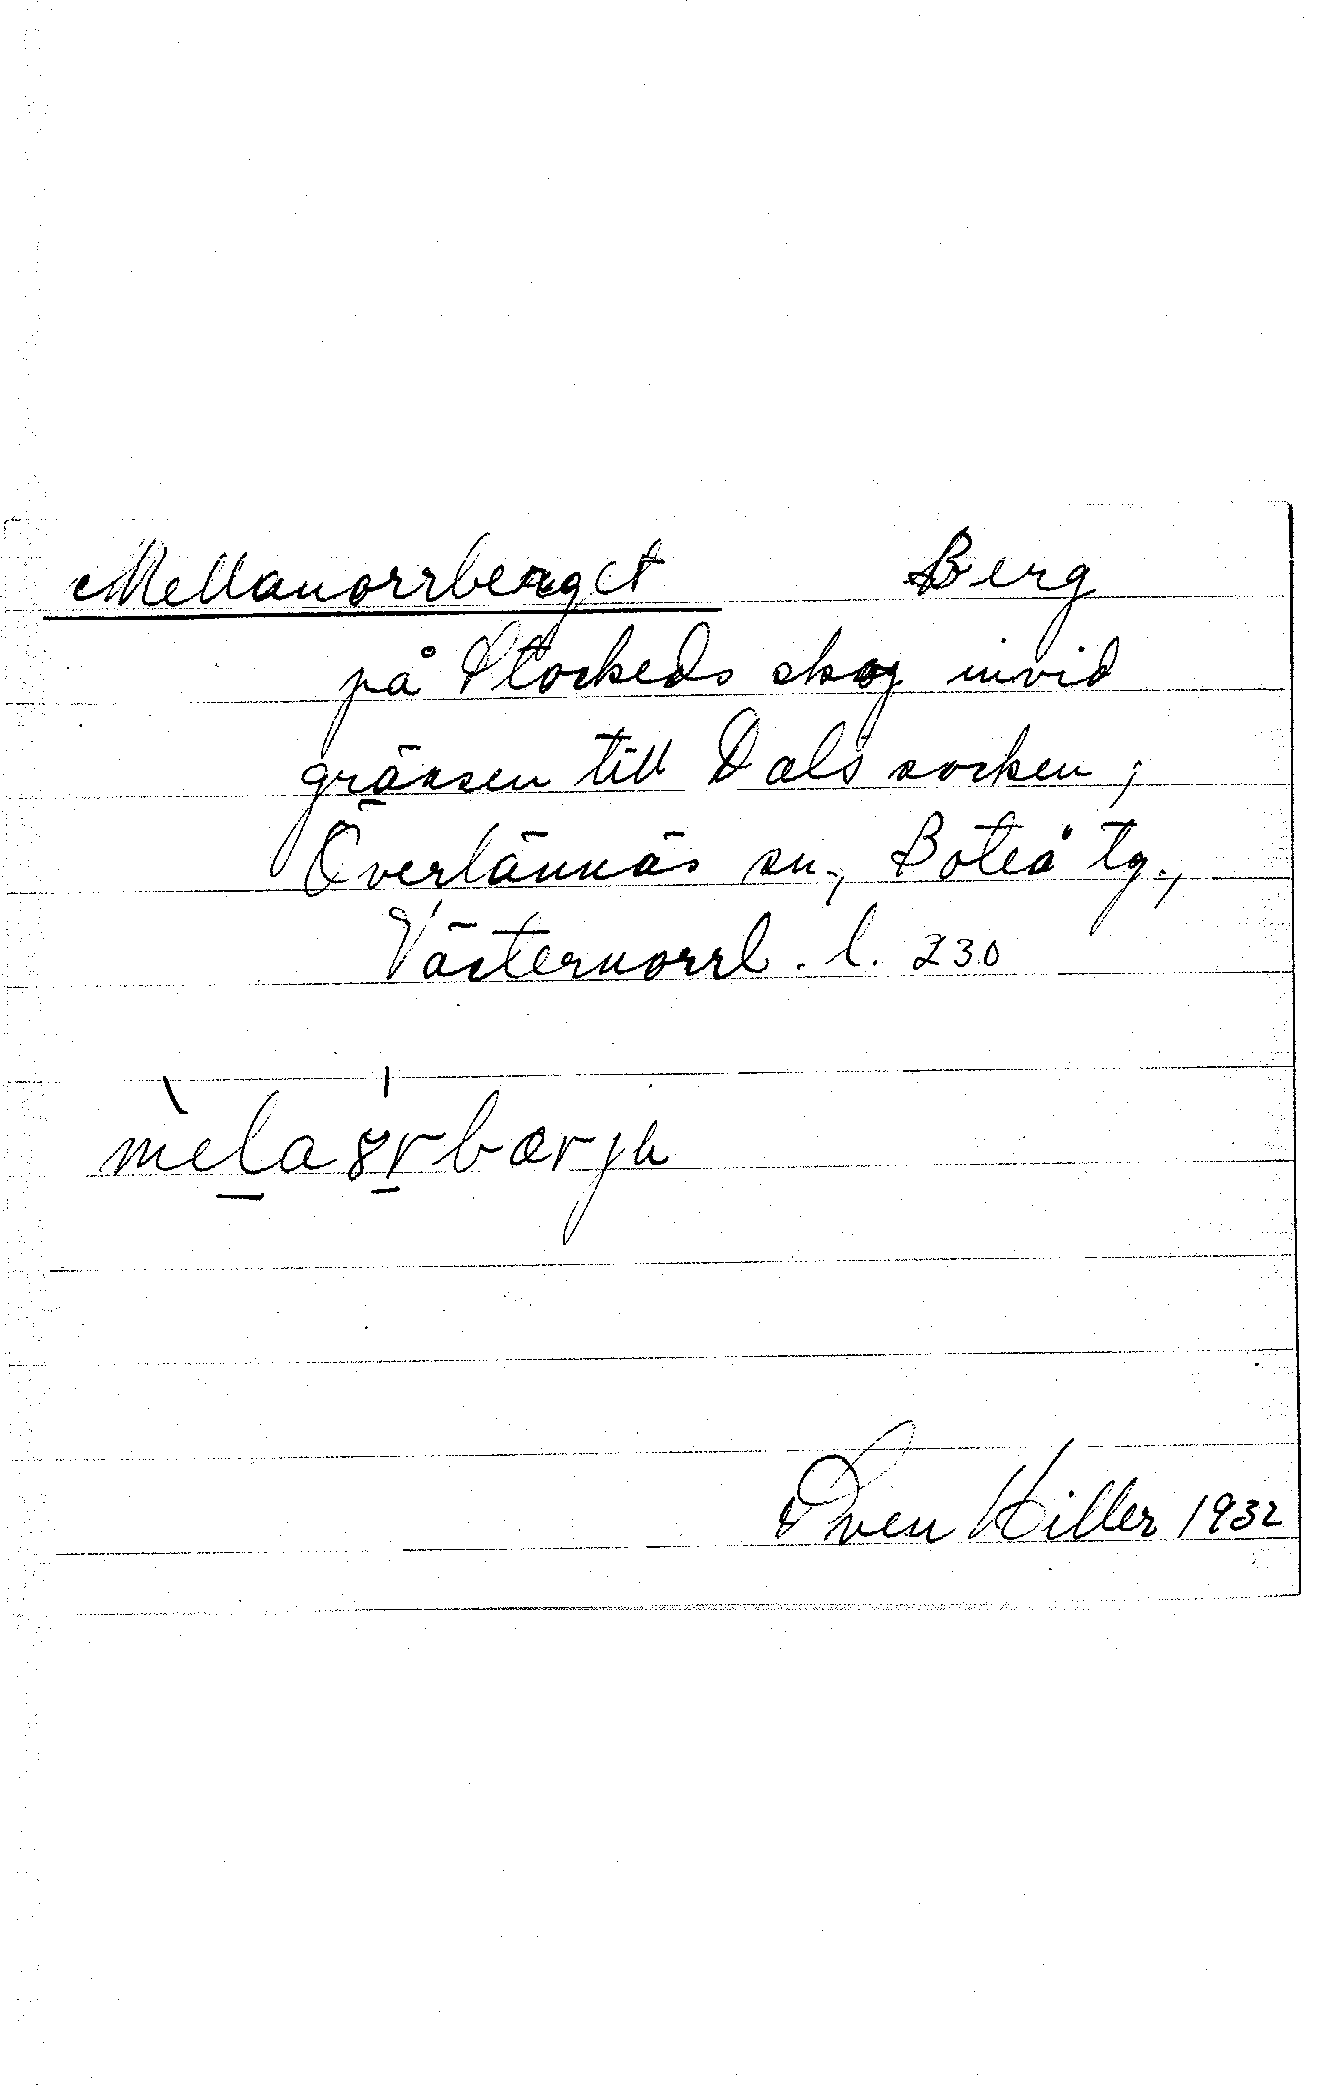 Mellanorrberget Berg
på Stockeds skog invid
gränsen till Dals socken,
Överlännäs sn., Boteå tg.,
Västernorrl. l. 230
mèla órbærja
Sven Hiller 1932